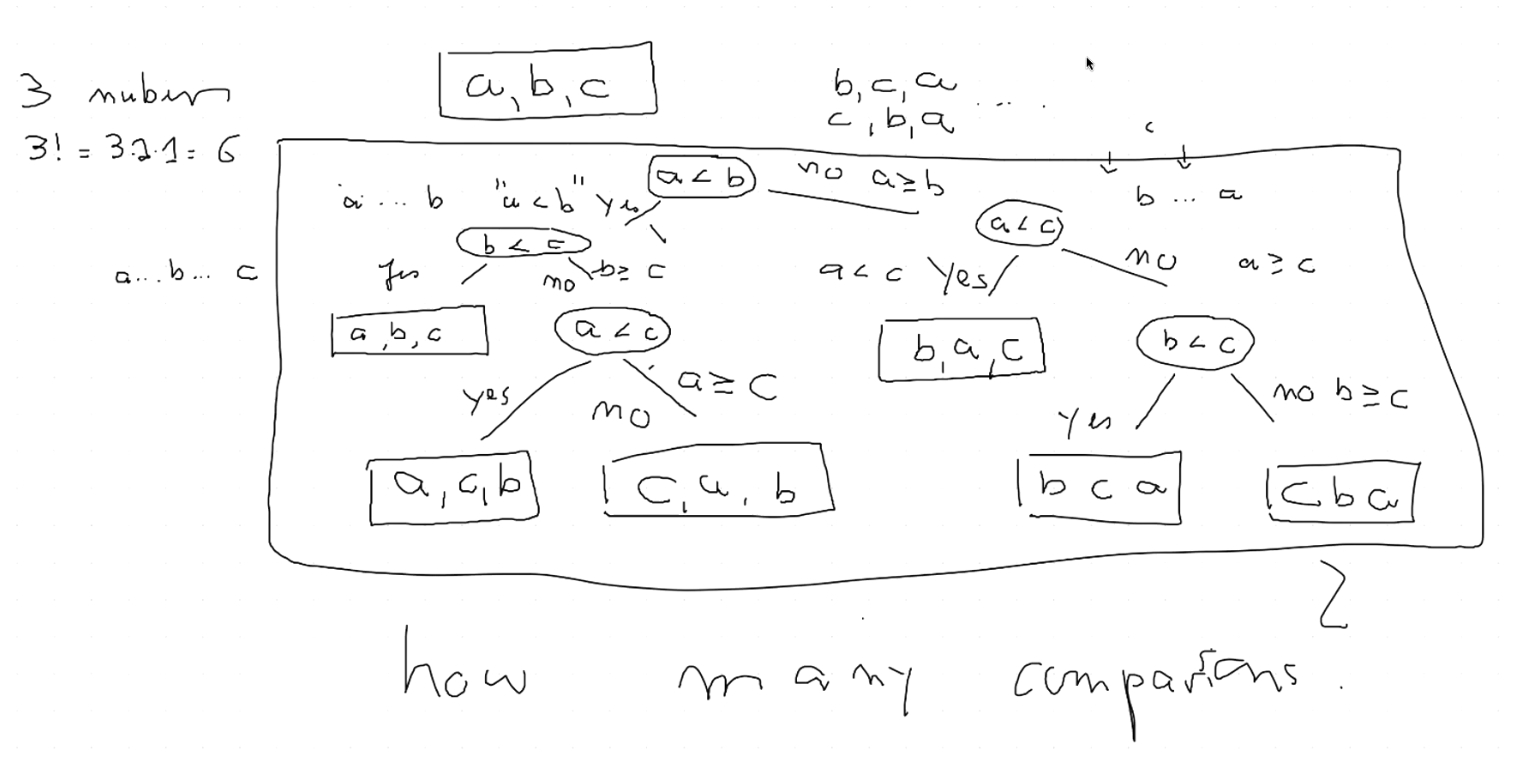 3 nubers
3! = 3·2·1 = 6
a, b, c
b, c, a
c, b, a .....
c
a ... b "a < b" yes
a < b
no a ≥ b
b ... a
a ... b ... c
b < c
a < c
yes
no b ≥ c
a < c yes
no a ≥ c
a, b, c
a < c
b, a, c
b < c
yes
no
a ≥ c
yes
no b ≥ c
a, c, b
c, a, b
b c a
c b a
how many comparisons.